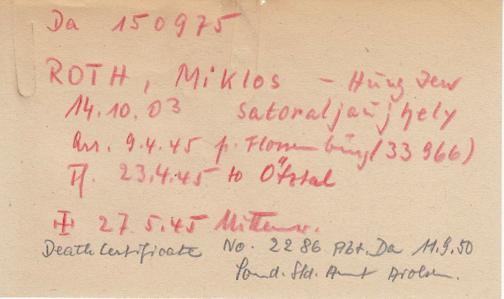 Da 150975
ROTH, Miklos - Hung Jew
14.10.03 Satoraljaujhely
Arr. 9.4.45 f. Flossenbürg (33966)
Tr. 23.4.45 to Ötztal
27.5.45 Mittenw.
Death Certificate No. 2286 Abt. Da 11.9.50
Sond. Std. Amt Arolsen.